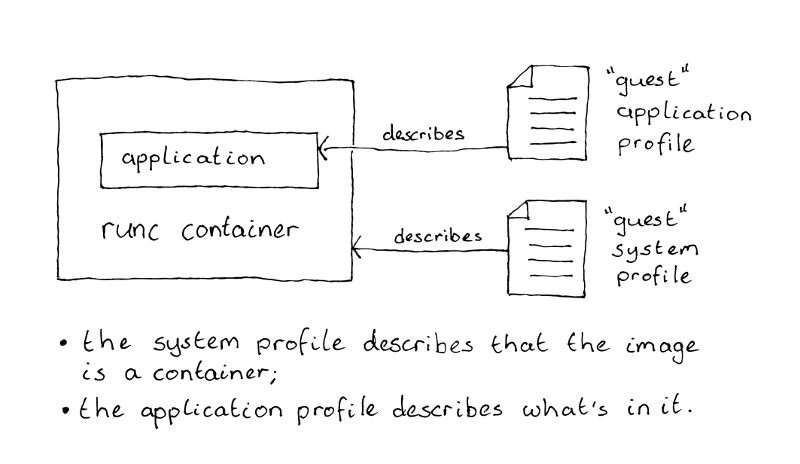 "guest"
application
profile
describes
application
runc container
describes
"guest"
system
profile
• the system profile describes that the image
is a container;
• the application profile describes what's in it.